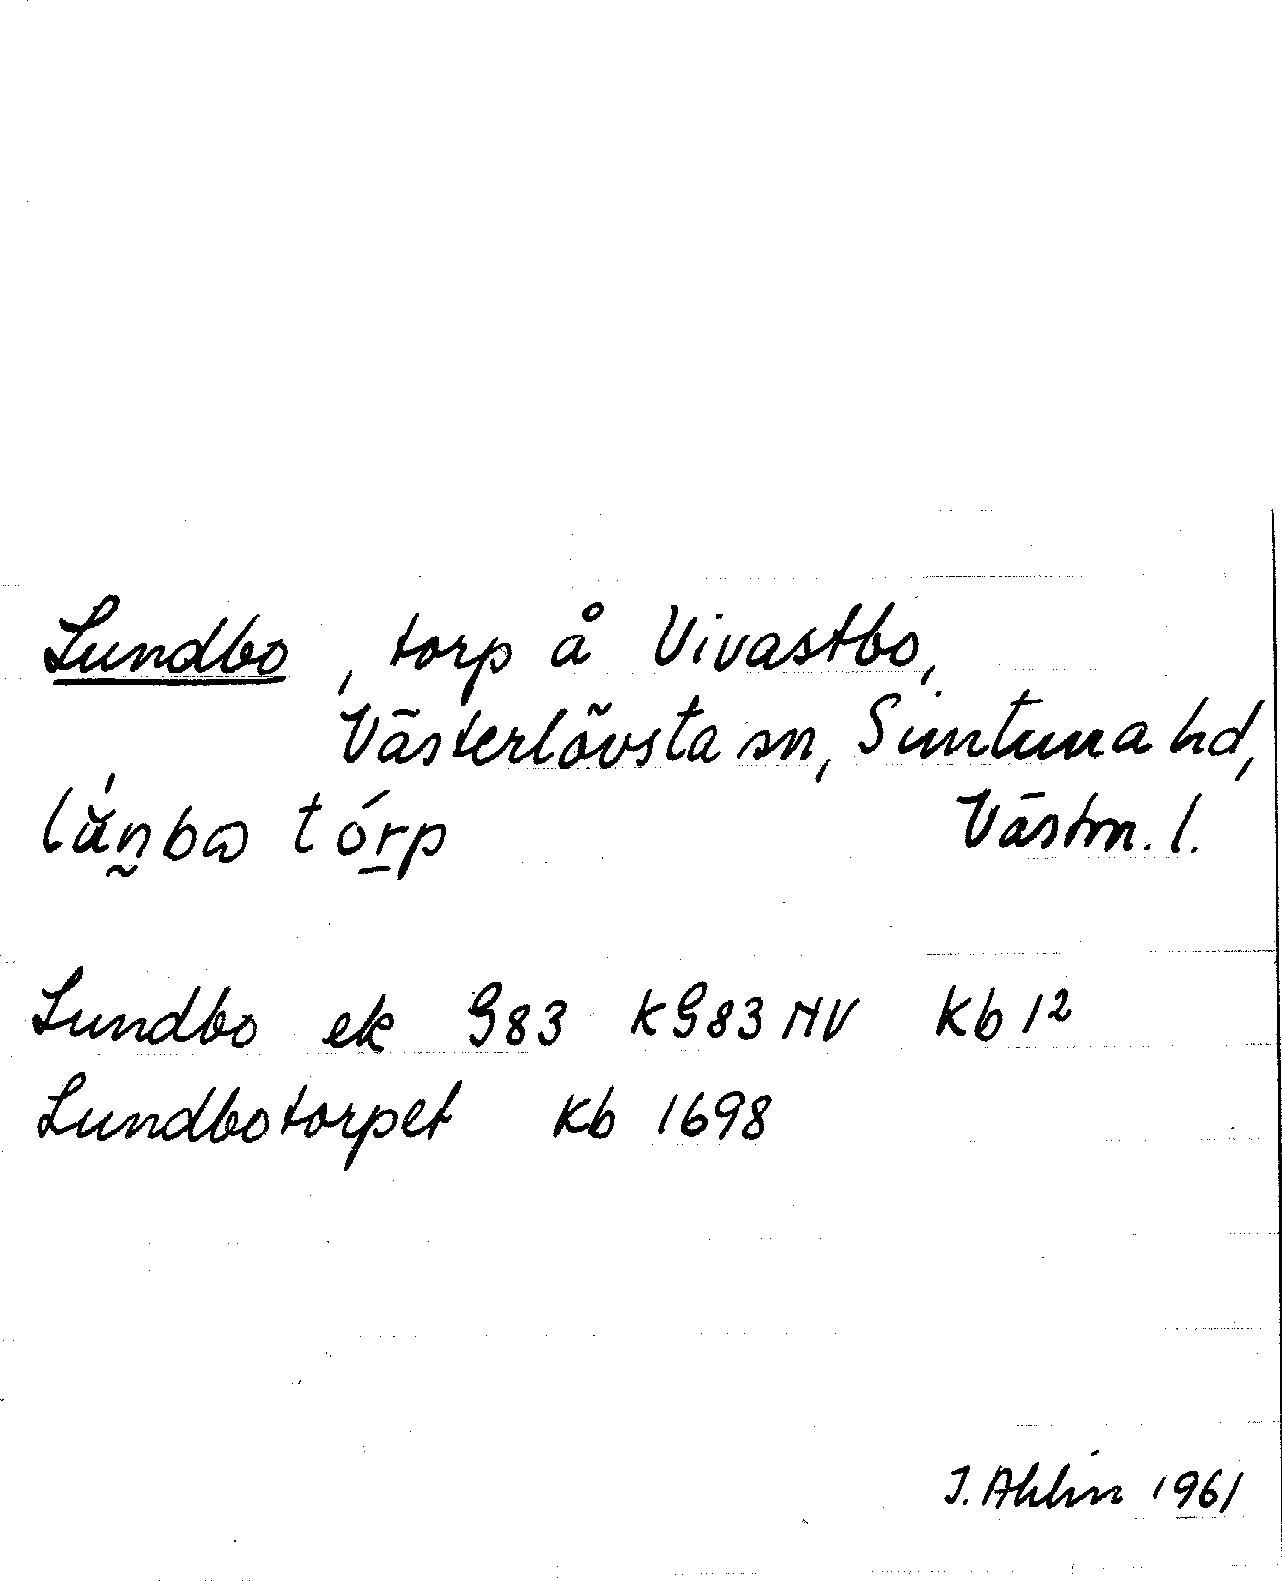 Lundbo, torp å Vivastbo,
Västerlövsta sn, Simtuna hd,
Västm. l.
tórp
Lundbo ek G83 KG83NV Kb 12
Lundbotorpet Kb 1698
J. Ahlin 1961